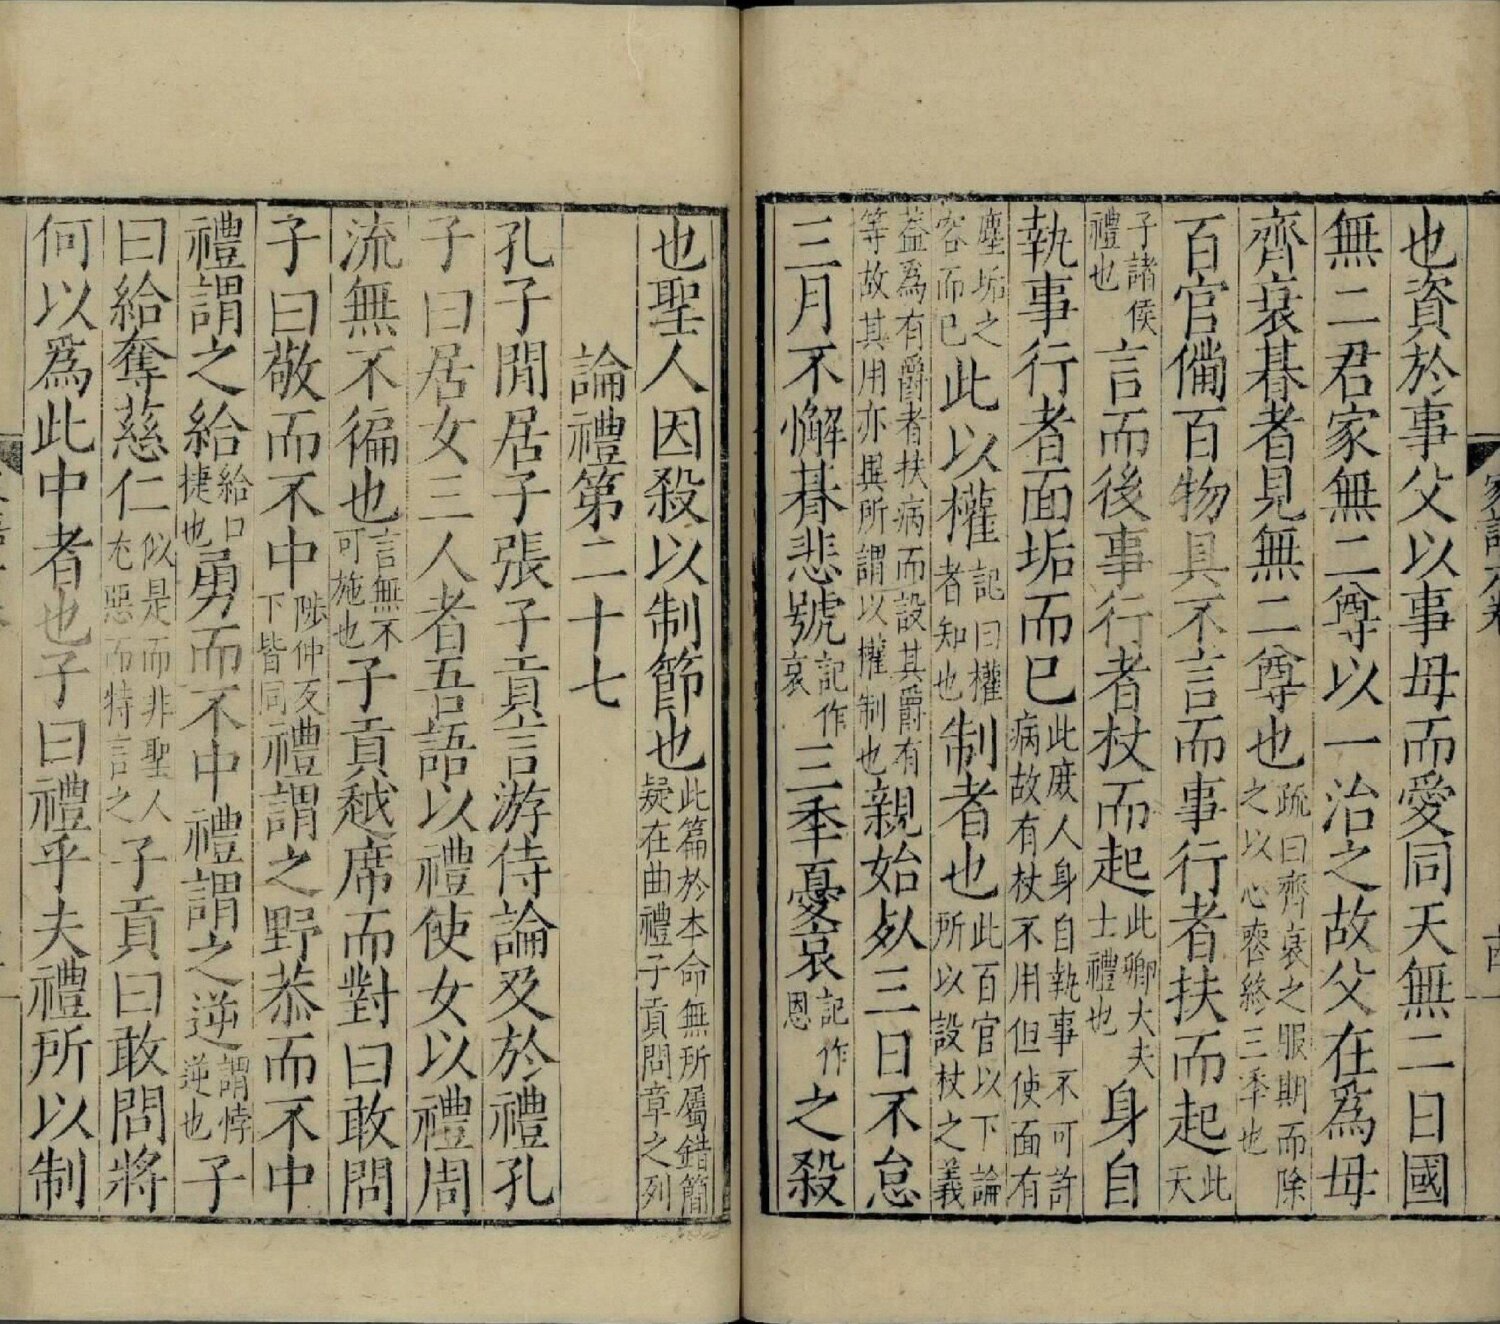 也資於事父以事母而愛同天無二日國
無二君家無二尊以一治之故父在爲母
齊衰朞者見無二尊也疏曰齊衰之服期而除之以心喪終三年也
百官備百物具不言而事行者扶而起此天
子諸侯禮也言而後事行者杖而起此卿大夫士禮也身自
執事行者面垢而已此庶人身自執事不可許病故有杖不用但使面有
塵垢之容而已此以權記曰權者知也制者也此百官以下論所以設杖之義
葢爲有爵者扶病而設其爵有等故其用亦異所謂以權制也親始死三日不怠
三月不懈朞悲號記作哀三年憂哀記作恩之殺
也聖人因殺以制節也此篇於本命無所屬錯簡疑在曲禮子貢問章之列
論禮第二十七
孔子閒居子張子貢言游侍論及於禮孔
子曰居女三人者吾語以禮使女以禮周
流無不徧也言無不可施也子貢越席而對曰敢問
子曰敬而不中陟仲反下皆同禮謂之野恭而不中
禮謂之給給口捷也勇而不中禮謂之逆謂悖逆也子
曰給奪慈仁似是而非聖人尤惡而特言之子貢曰敢問將
何以爲此中者也子曰禮乎夫禮所以制